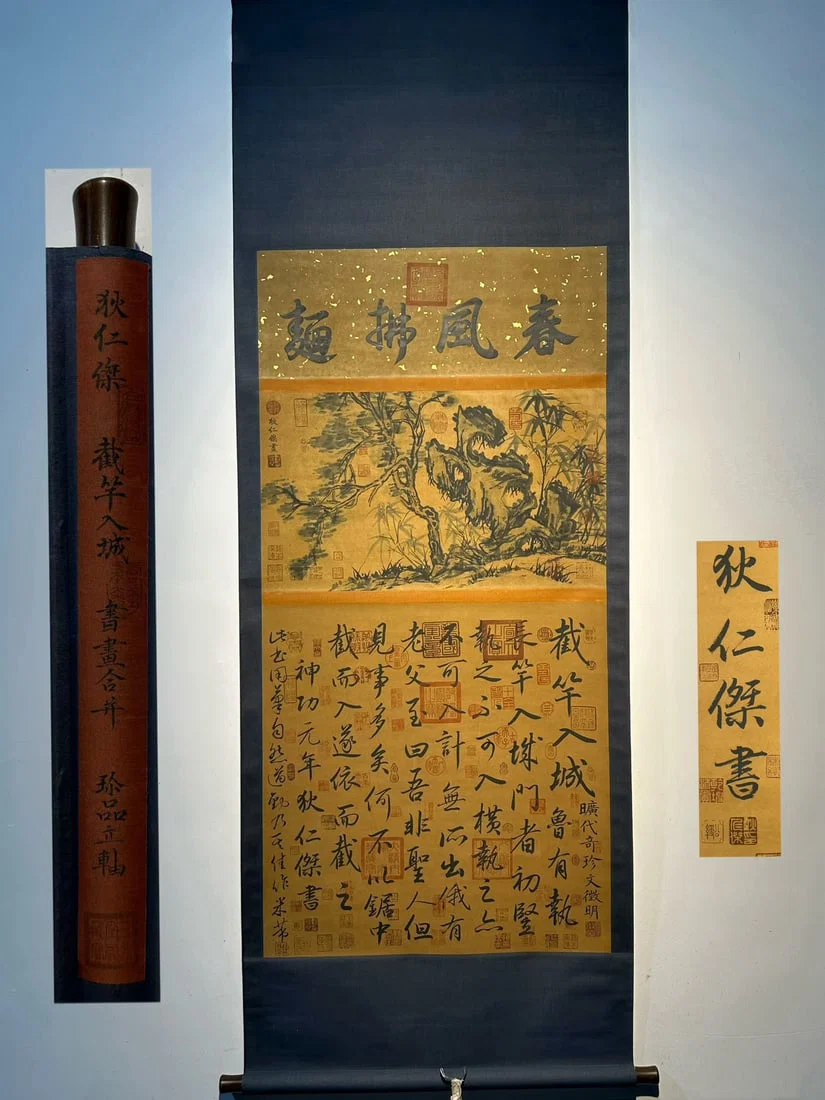 狄仁傑 截竿入城 書畫合并 珍品立軸
春風拂麵
狄仁傑畫
曠代奇珍文徵明
截竿入城魯有執
長竿入城門者初豎
執之不可入橫執之亦
不可入計無所出俄有
老父至曰吾非聖人但
見事多矣何不以鋸中
截而入遂依而截之
神功元年狄仁傑書
此書用筆自然遒勁乃佳作米芾
狄仁傑書